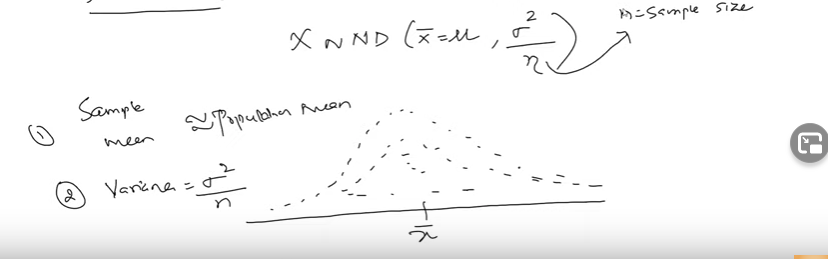 X ~ ND (x̄ = μ, σ²/n)
n = Sample size
① Sample mean ≈ Population mean
② Variance = σ²/n
x̄